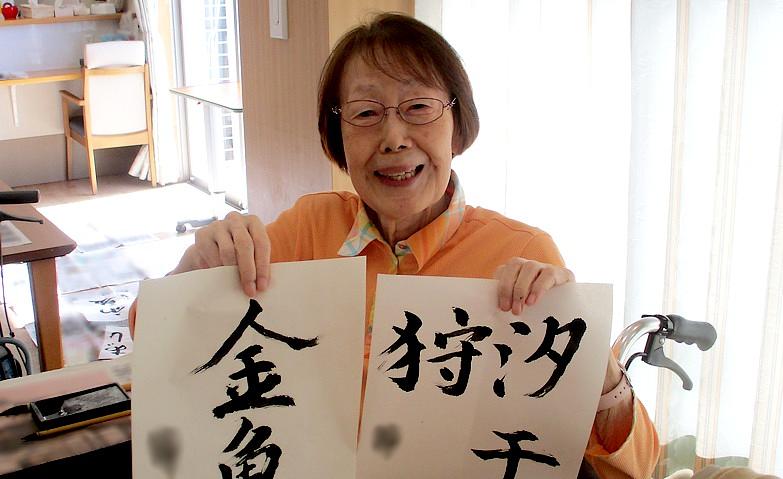 金魚
汐干
狩